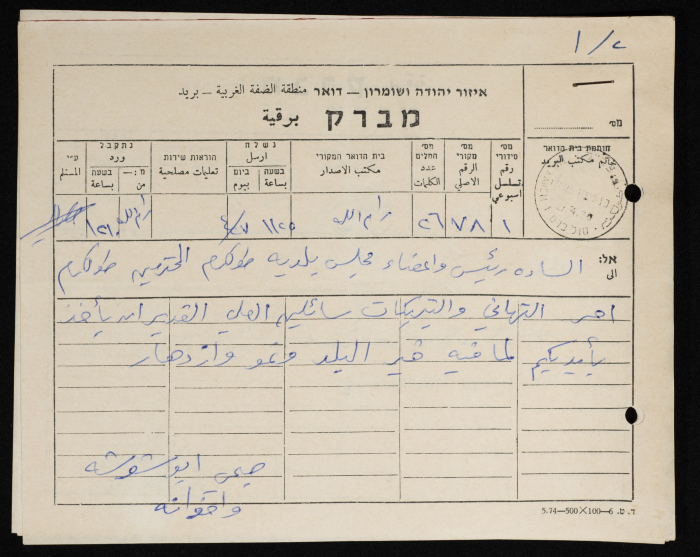 ١/ح
איזור יהודה ושומרון – דואר منطقة الضفة الغربية – بريد
מברק برقية
מס׳
חותמת בית הדואר
خاتم مكتب البريد
נתקבל
ورد
מ:— من
בשעה بساعة
ע״י
المستلم
נשלח
ارسل
ביום بيوم
בשעה بساعة
הוראות שירות
تعليمات مصلحية
בית הדואר המקורי
مكتب الاصدار
מס׳ המלים
عدد الكلمات
מס׳ מקורי
الرقم الاصلي
מס׳ סידורי
رقم تسلسل اسبوعي
رام الله ١٢١٠ ٤/٧ ١١٢٥ رام الله ٢٦ ٧٨ ١
אל:
الى
الساده رئيس واعضاء مجلس بلديه طولكرم المحترمين طولكرم
احر التهاني والتبريكات سائلين العلي القدير ان يأخذ
بأيديكم لما فيه خير البلد ونمو وازدهار
يحيى ابو شوشه
واخوانه
ד. ט. 6—100×500—5.74